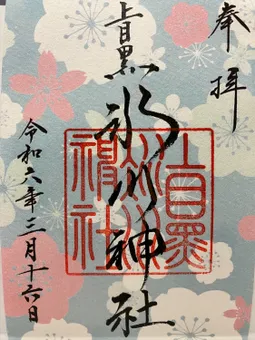 奉拝
上目黒氷川神社
令和六年三月十六日
上目黒
氷川神
社